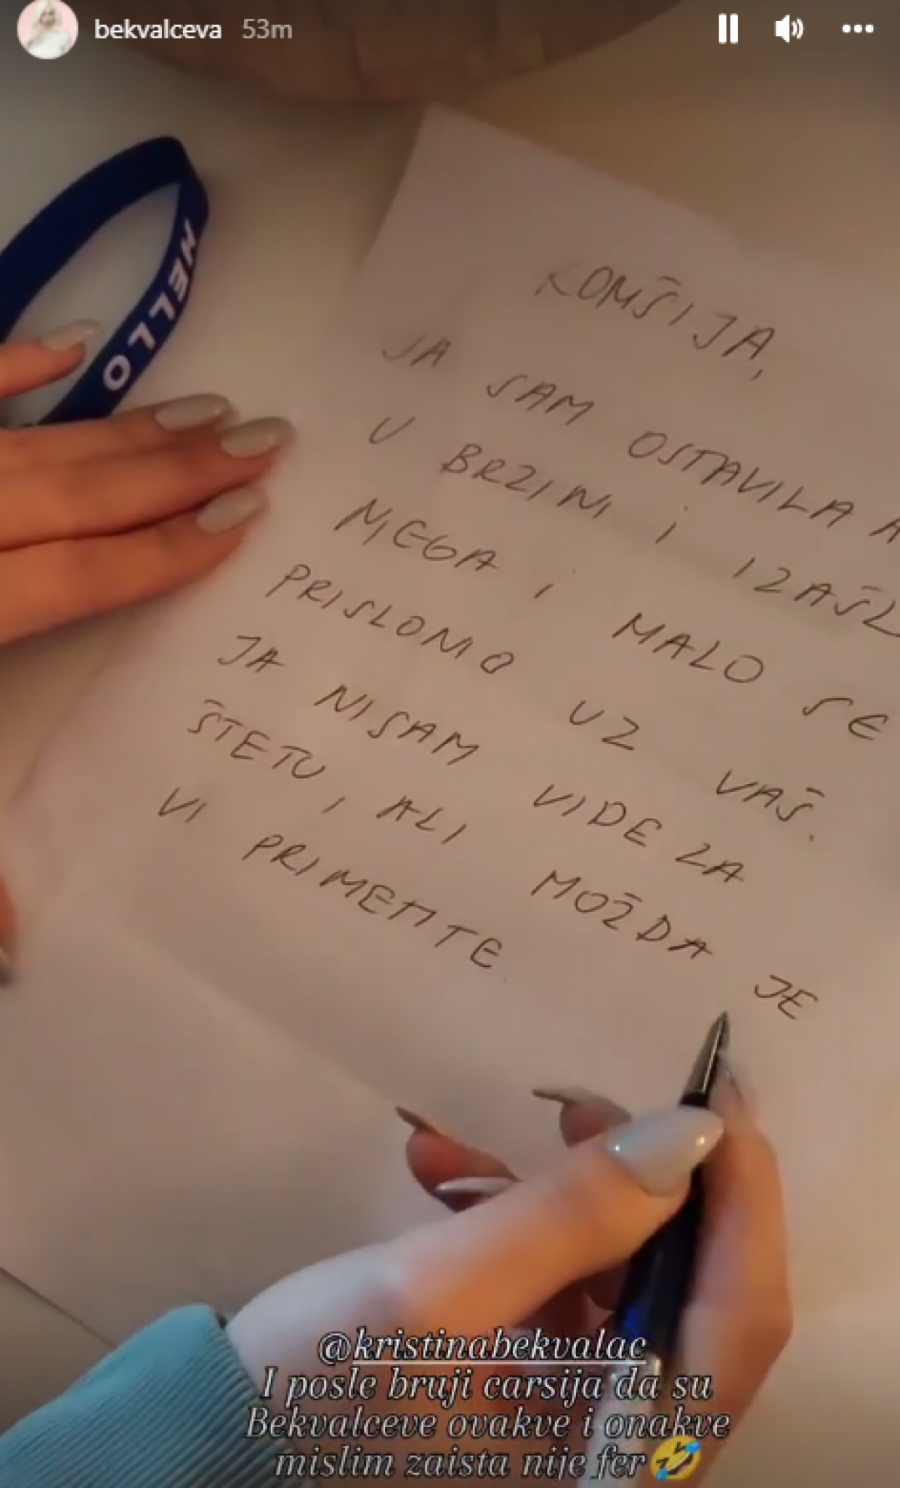 bekvalceva 53m
HELLO
KOMŠIJA,
JA SAM OSTAVILA
U BRZINI I IZAŠL
NJEGA I MALO SE
PRISLONIO UZ VAŠ.
JA NISAM VIDELA
ŠTETU, ALI MOŽDA JE
VI PRIMETITE
@kristinabekvalac
I posle bruji carsija da su
Bekvalceve ovakve i onakve
mislim zaista nije fer🤣